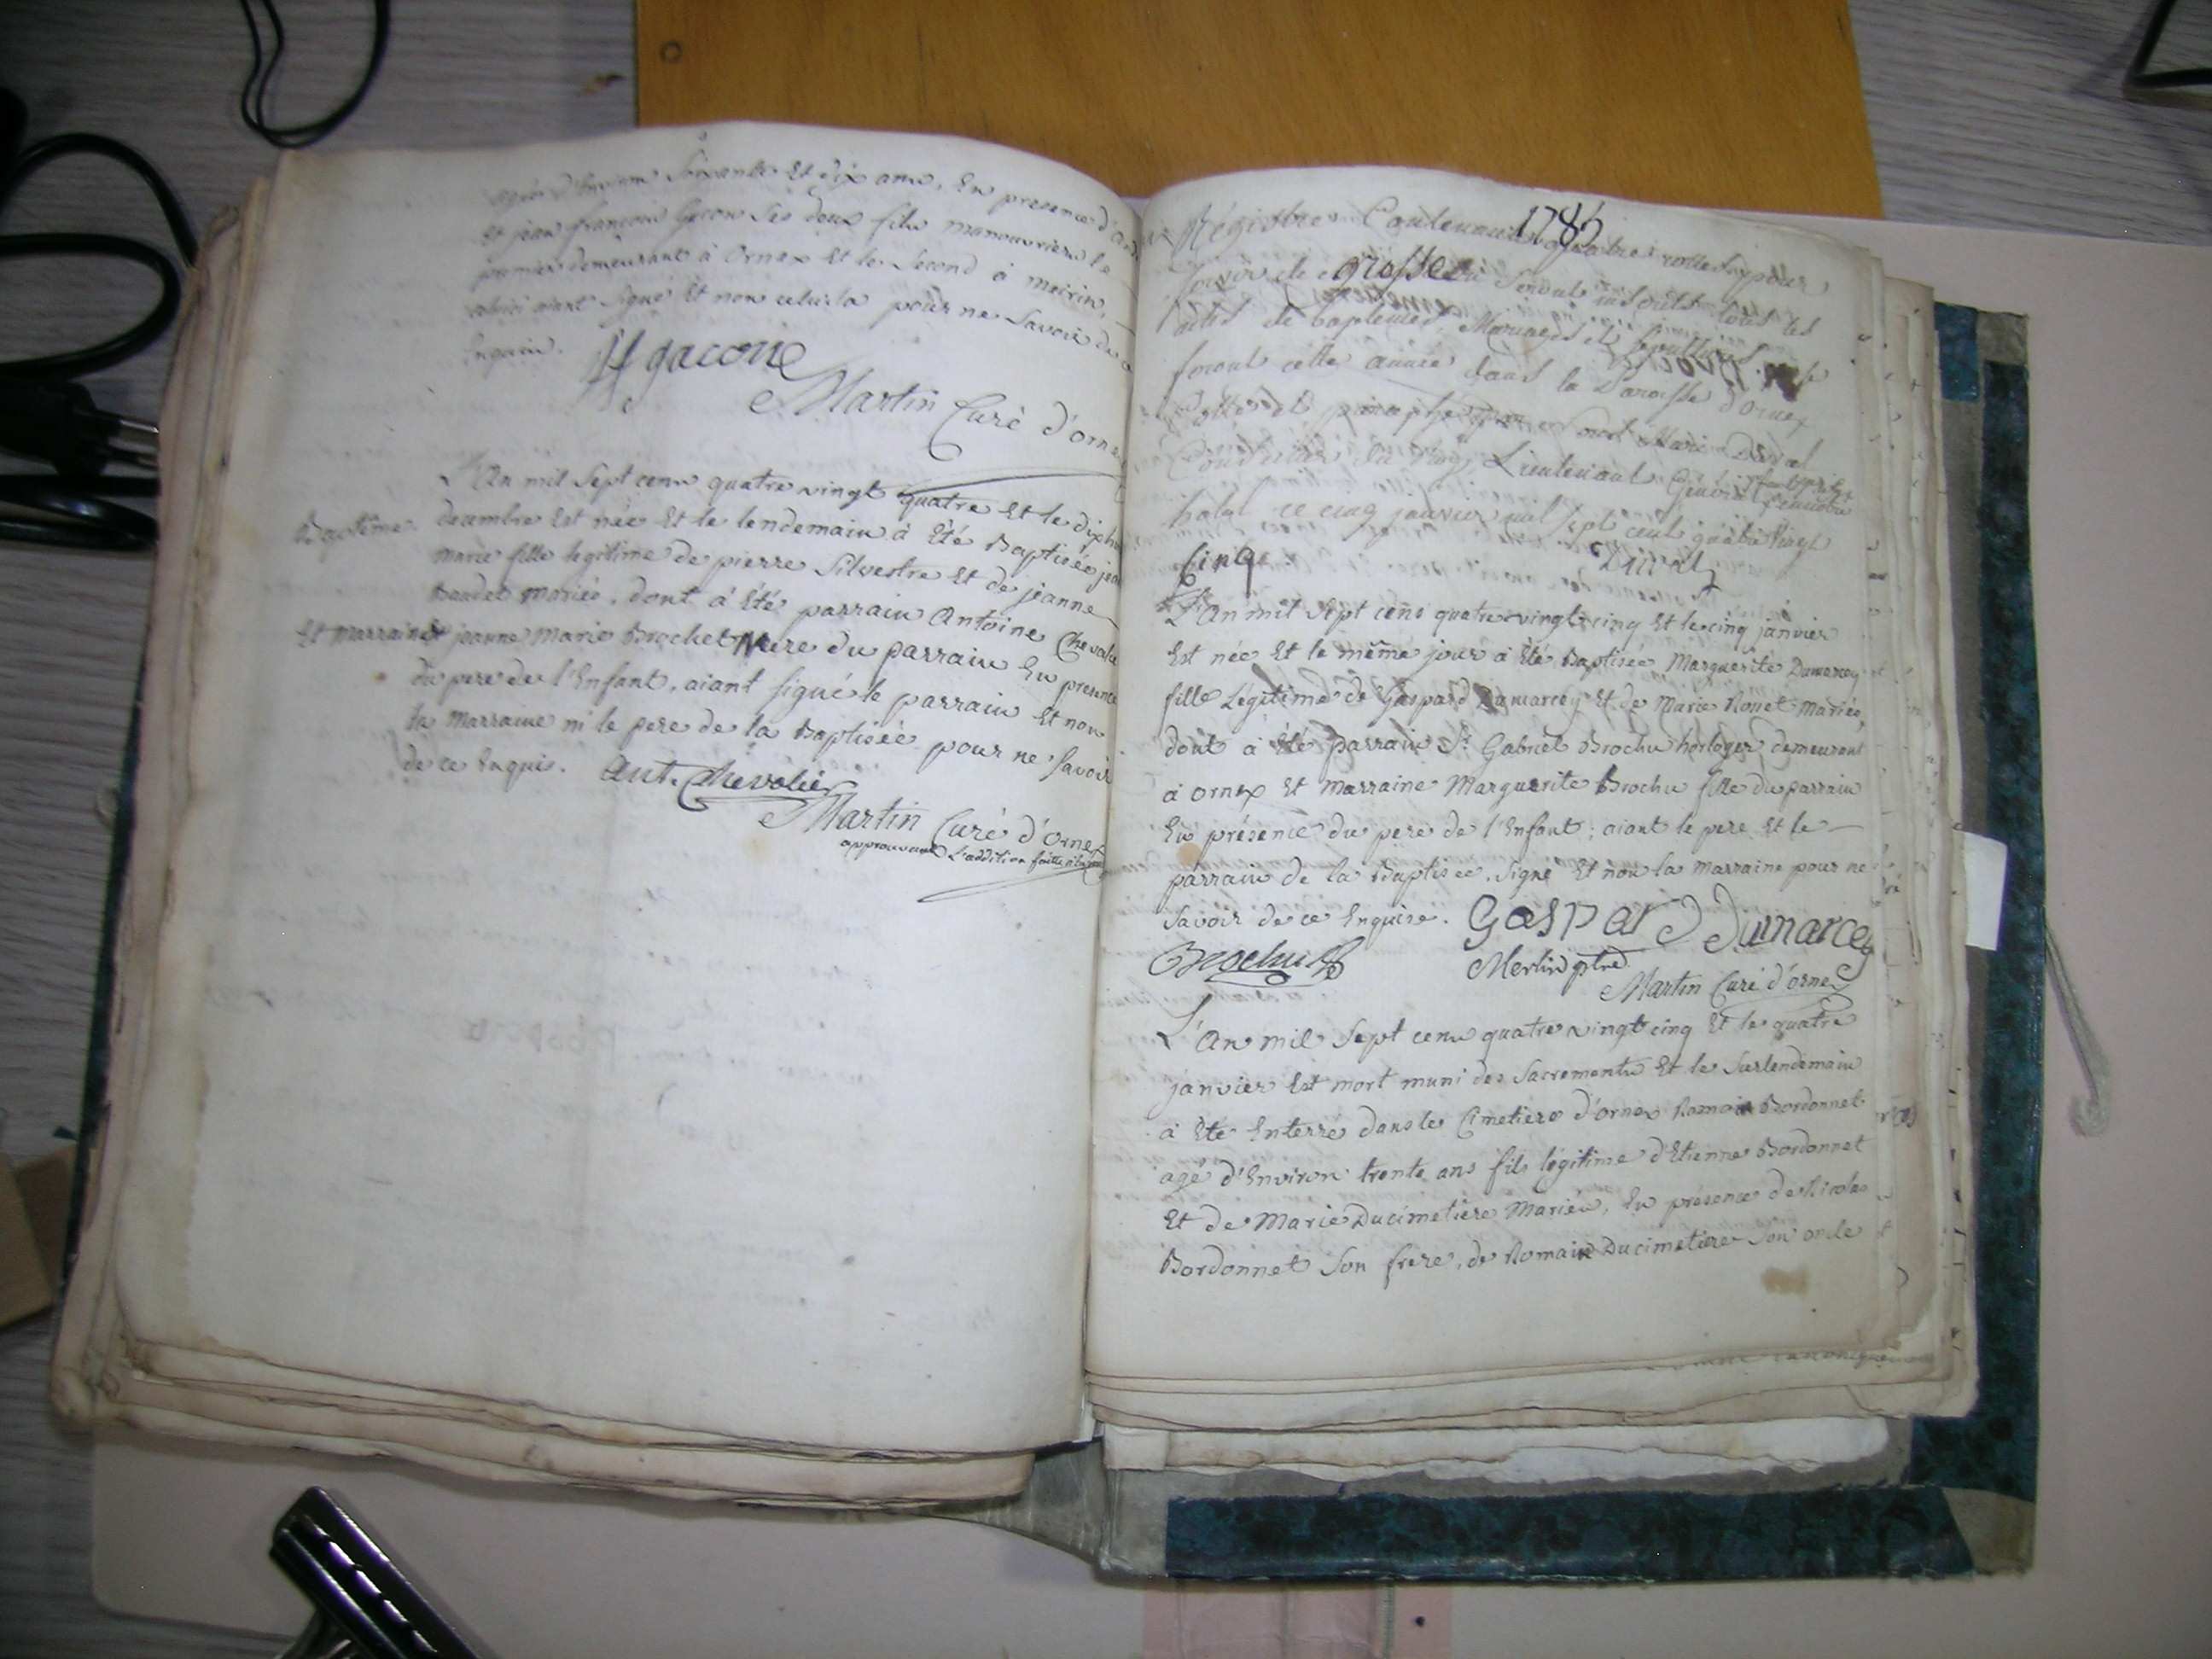 agée d'Environ Soixante Et dix ans, En presence d'
Et jean françois gacon Ses deux fils manouvriers le
premier demeurant à Ornex Et le Second à meirin,
celuici aiant Signé Et non celuila pour ne Savoir de ce
Enquis.
gacon
Martin Curé d'ornex
L'An mil Sept cens quatre vingt quatre Et le dixhuit
Baptême.
decembre Est née Et le lendemain à Eté Baptisée jeanne
marie fille legitime de pierre Silvestre Et de jeanne
Baudet mariés, dont à Eté parrain Antoine Chevalier
Et marraine jeanne Marie Brochet Mere du parrain En presence
du pere de l'Enfant, aiant signé le parrain Et non
la Marraine ni le pere de la Baptisée pour ne Savoir
de ce Enquis. Ant. Chevalier
Martin Curé d'ornex
approuvant L'addition faitte à la
1785
Régistre Contenant quatre rolles pour
servir de grosse Seront inscrits tous les
actes de baptemes, Mariages et Sepultures qui se
feront cette année dans la Paroisse d'ornex
Cotté et paraphé par Marie Duval
Conseiller du Roy, Lieutenant Géneral
ce cinq janvier mil sept cent quatre vingt
Cinq
Duval
L'An mil Sept cens quatre vingt cinq Et le cinq janvier
Est née Et le même jour à Eté Baptisée Marguerite Dumarcey
fille Légitime de Gaspard Dumarcey Et de Marie Rouet mariés,
dont à Eté parrain Sr. Gabriel Brochu horloger demeurant
à ornex Et marraine Marguerite Brochu fille du parrain
En présence du pere de l'Enfant; aiant le pere Et le
parrain de la Baptisée, Signé Et non la marraine pour ne
Savoir de ce Enquise. Gaspard Dumarcey
Brochu Merlin ptre
Martin Curé d'ornex
L'An mil Sept cens quatre vingt cinq Et le quatre
janvier Est mort muni des Sacrements Et le Surlendemain
à Eté Enterré dans le Cimetiere d'ornex Romain Bordonnet
agé d'Environ trente ans fils légitime d'Etienne Bordonnet
Et de Marie Ducimetiere Mariés, En presence de Nicolas
Bordonnet Son frere, de Romain Ducimetiere Son oncle